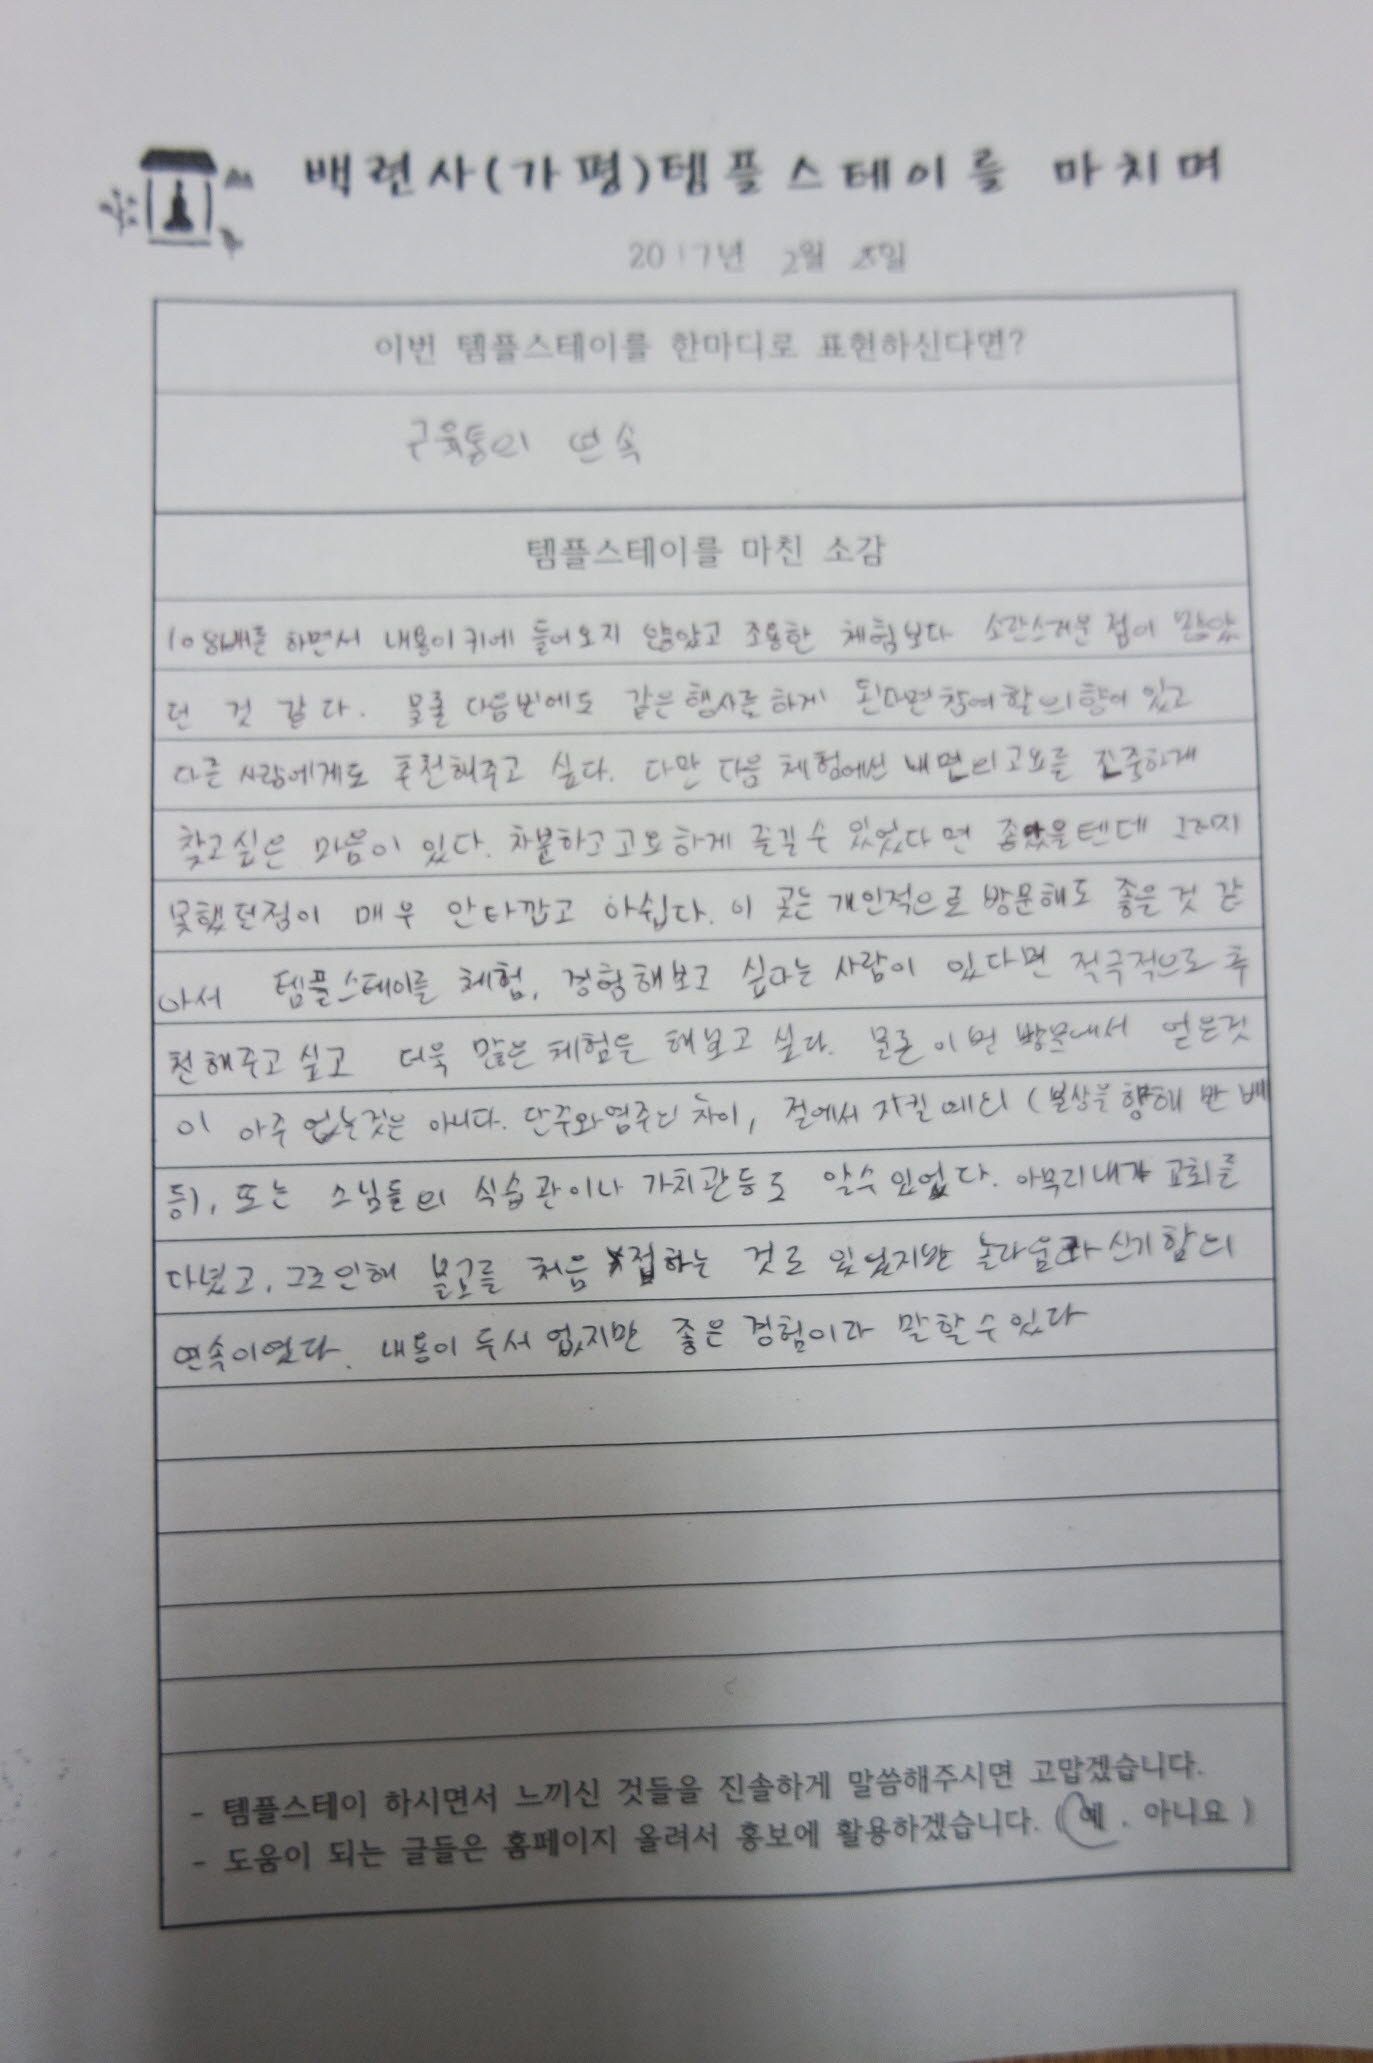 백련사(가평)템플스테이를 마치며
2017년 2월 8일
이번 템플스테이를 한마디로 표현하신다면?
근육통의 연속
템플스테이를 마친 소감
108배를 하면서 내용이 귀에 들어오지 않았고 조용한 체험보다 소란스러운 점이 많았
던 것 같다. 물론 다음번에도 같은 행사를 하게 된다면 참여할 의향이 있고
다른 사람에게도 추천해주고 싶다. 다만 다음 체험에선 내면의 고요를 진중하게
찾고싶은 마음이 있다. 차분하고 고요하게 즐길 수 있었다면 좋았을텐데 그러지
못했던점이 매우 안타깝고 아쉽다. 이 곳은 개인적으로 방문해도 좋은 것 같
아서 템플스테이를 체험, 경험해보고 싶다는 사람이 있다면 적극적으로 추
천해주고 싶고 더욱 많은 체험을 해보고 싶다. 물론 이번 방문에서 얻은것
이 아주 없는것은 아니다. 단주와 염주의 차이, 절에서 지킬 예의 (불상을 향해 반 배
등), 또는 스님들의 식습관이나 가치관등도 알수 있었다. 아무리 내가 교회를
다녔고, 그로인해 불교를 처음 접하는 것도 있었지만 놀라움과 신기함의
연속이였다. 내용이 두서 없지만 좋은 경험이라 말할 수 있다
- 템플스테이 하시면서 느끼신 것들을 진솔하게 말씀해주시면 고맙겠습니다.
- 도움이 되는 글들은 홈페이지 올려서 홍보에 활용하겠습니다. ( 예 , 아니요 )